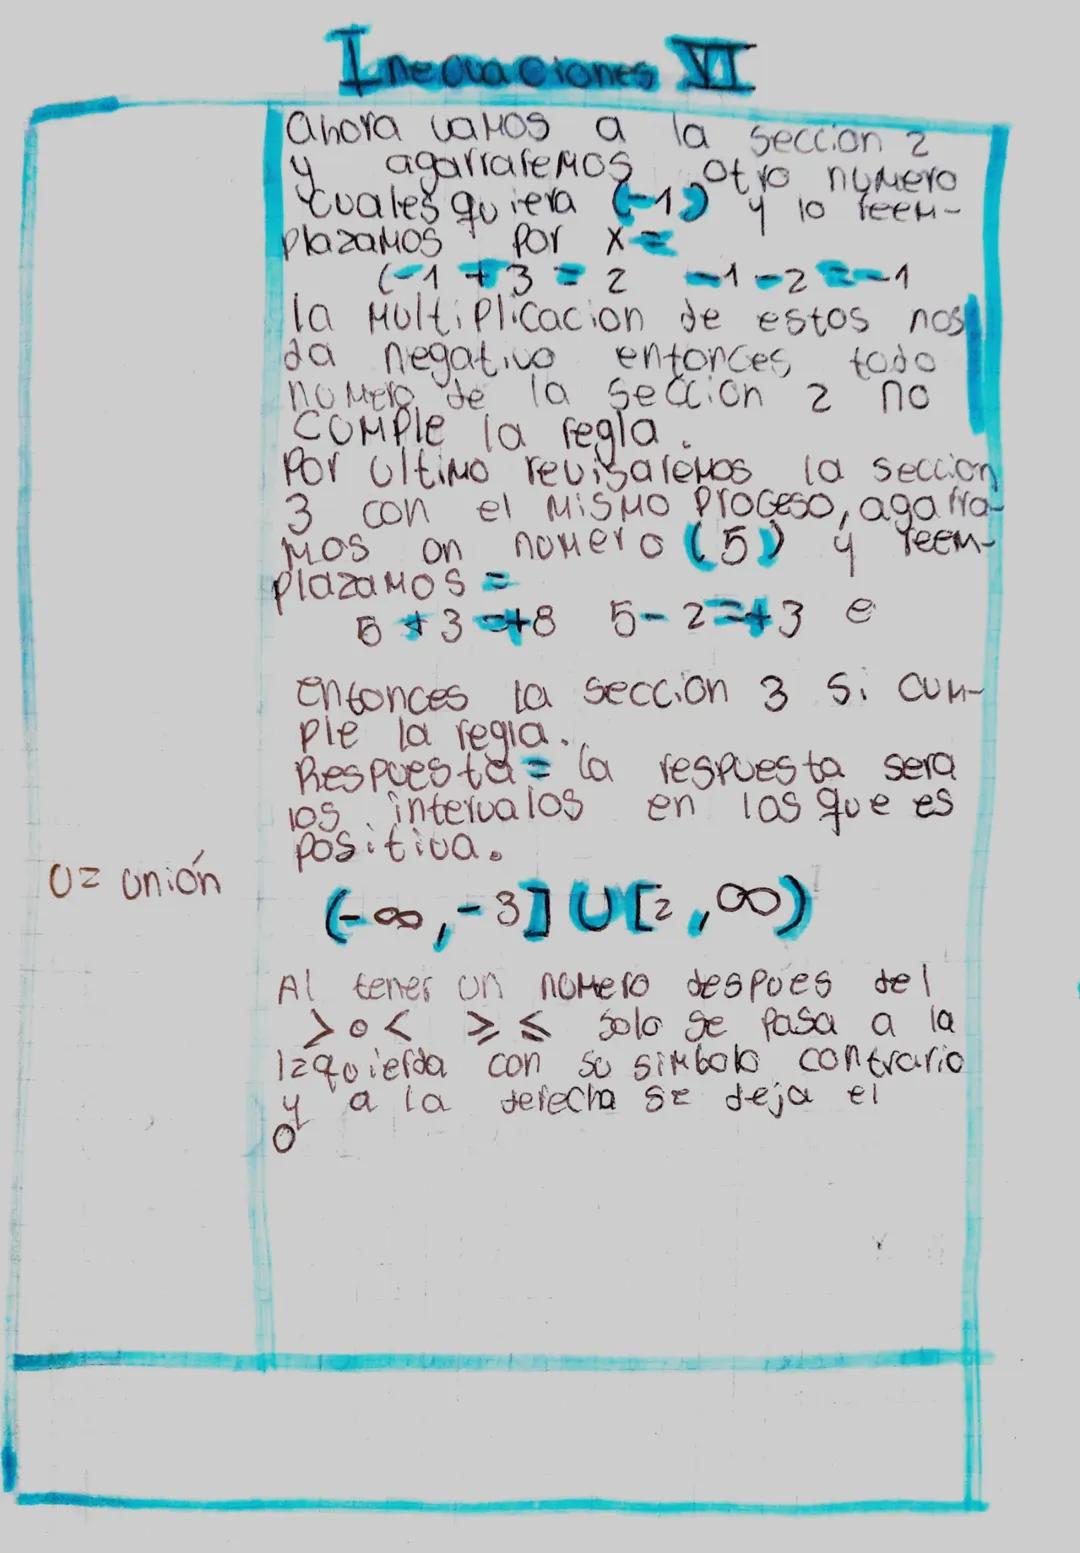 Inecuaciones VI
ahora vamos a la seccion 2
y agarraremos otro numero
cuales quiera (-1) y lo reem-
plazamos por x =
(-1 + 3 = 2 -1 - 2 = -1
la multiplicacion de estos nos
da negativo entonces todo
numero de la seccion 2 no
cumple la regla.
Por ultimo revisaremos la seccion
3 con el mismo proceso, agarra-
mos un numero (5) y reem-
plazamos =
5 + 3 = +8 5 - 2 = +3 e
entonces la seccion 3 si cum-
ple la regla.
Respuesta = la respuesta sera
los intervalos en los que es
positiva.
U = unión
(-∞, -3] U [2, ∞)
Al tener un numero despues del
> o < ≥ ≤ solo se pasa a la
izquierda con su simbolo contrario
y a la derecha se deja el
0